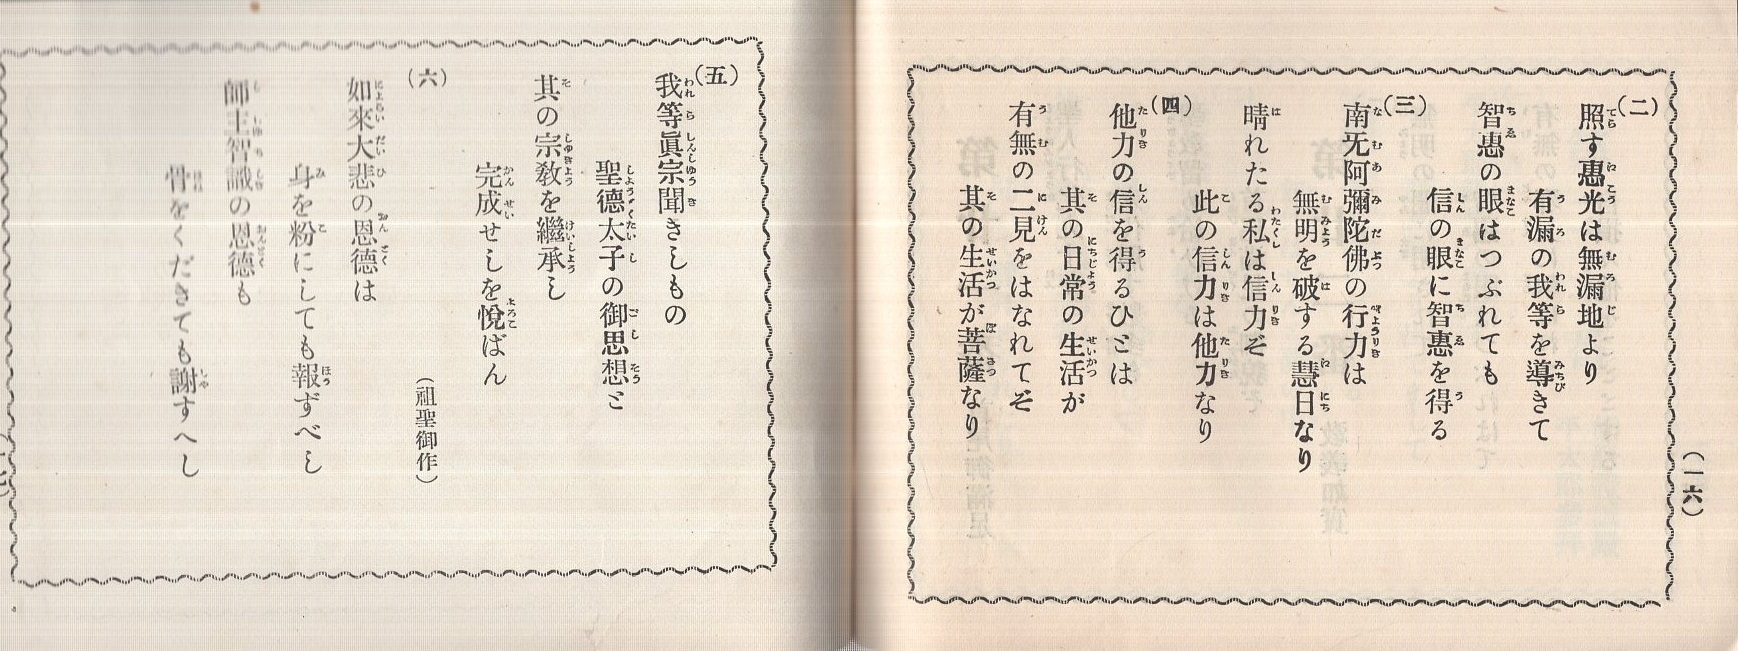 (一六)
(二)
照す惠光は無漏地より
有漏の我等を導きて
智惠の眼はつぶれても
信の眼に智惠を得る
(三)
南无阿彌陀佛の行力は
無明を破する慧日なり
晴れたる私は信力ぞ
此の信力は他力なり
(四)
他力の信を得るひとは
其の日常の生活が
有無の二見をはなれてぞ
其の生活が菩薩なり
(五)
我等眞宗聞きしもの
聖德太子の御思想と
其の宗敎を繼承し
完成せしを悅ばん
(六)
(祖聖御作)
如來大悲の恩德は
身を粉にしても報ずべし
師主智識の恩德も
骨をくだきても謝すへし